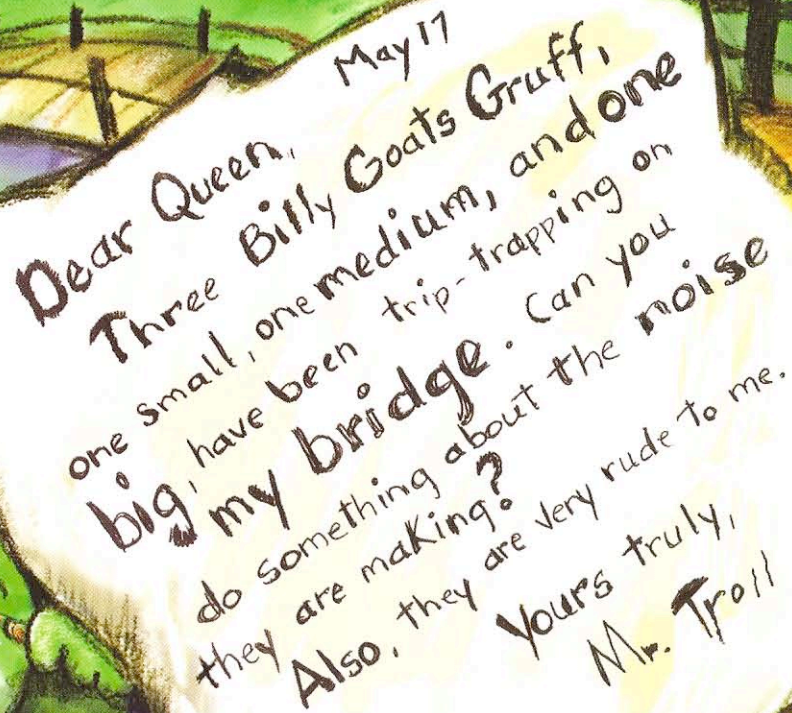 May 17
Dear Queen,
Three Billy Goats Gruff,
one small, one medium, and one
big, have been trip-trapping on
my bridge. Can you
do something about the noise
they are making?
Also, they are very rude to me.
Yours truly,
Mr. Troll